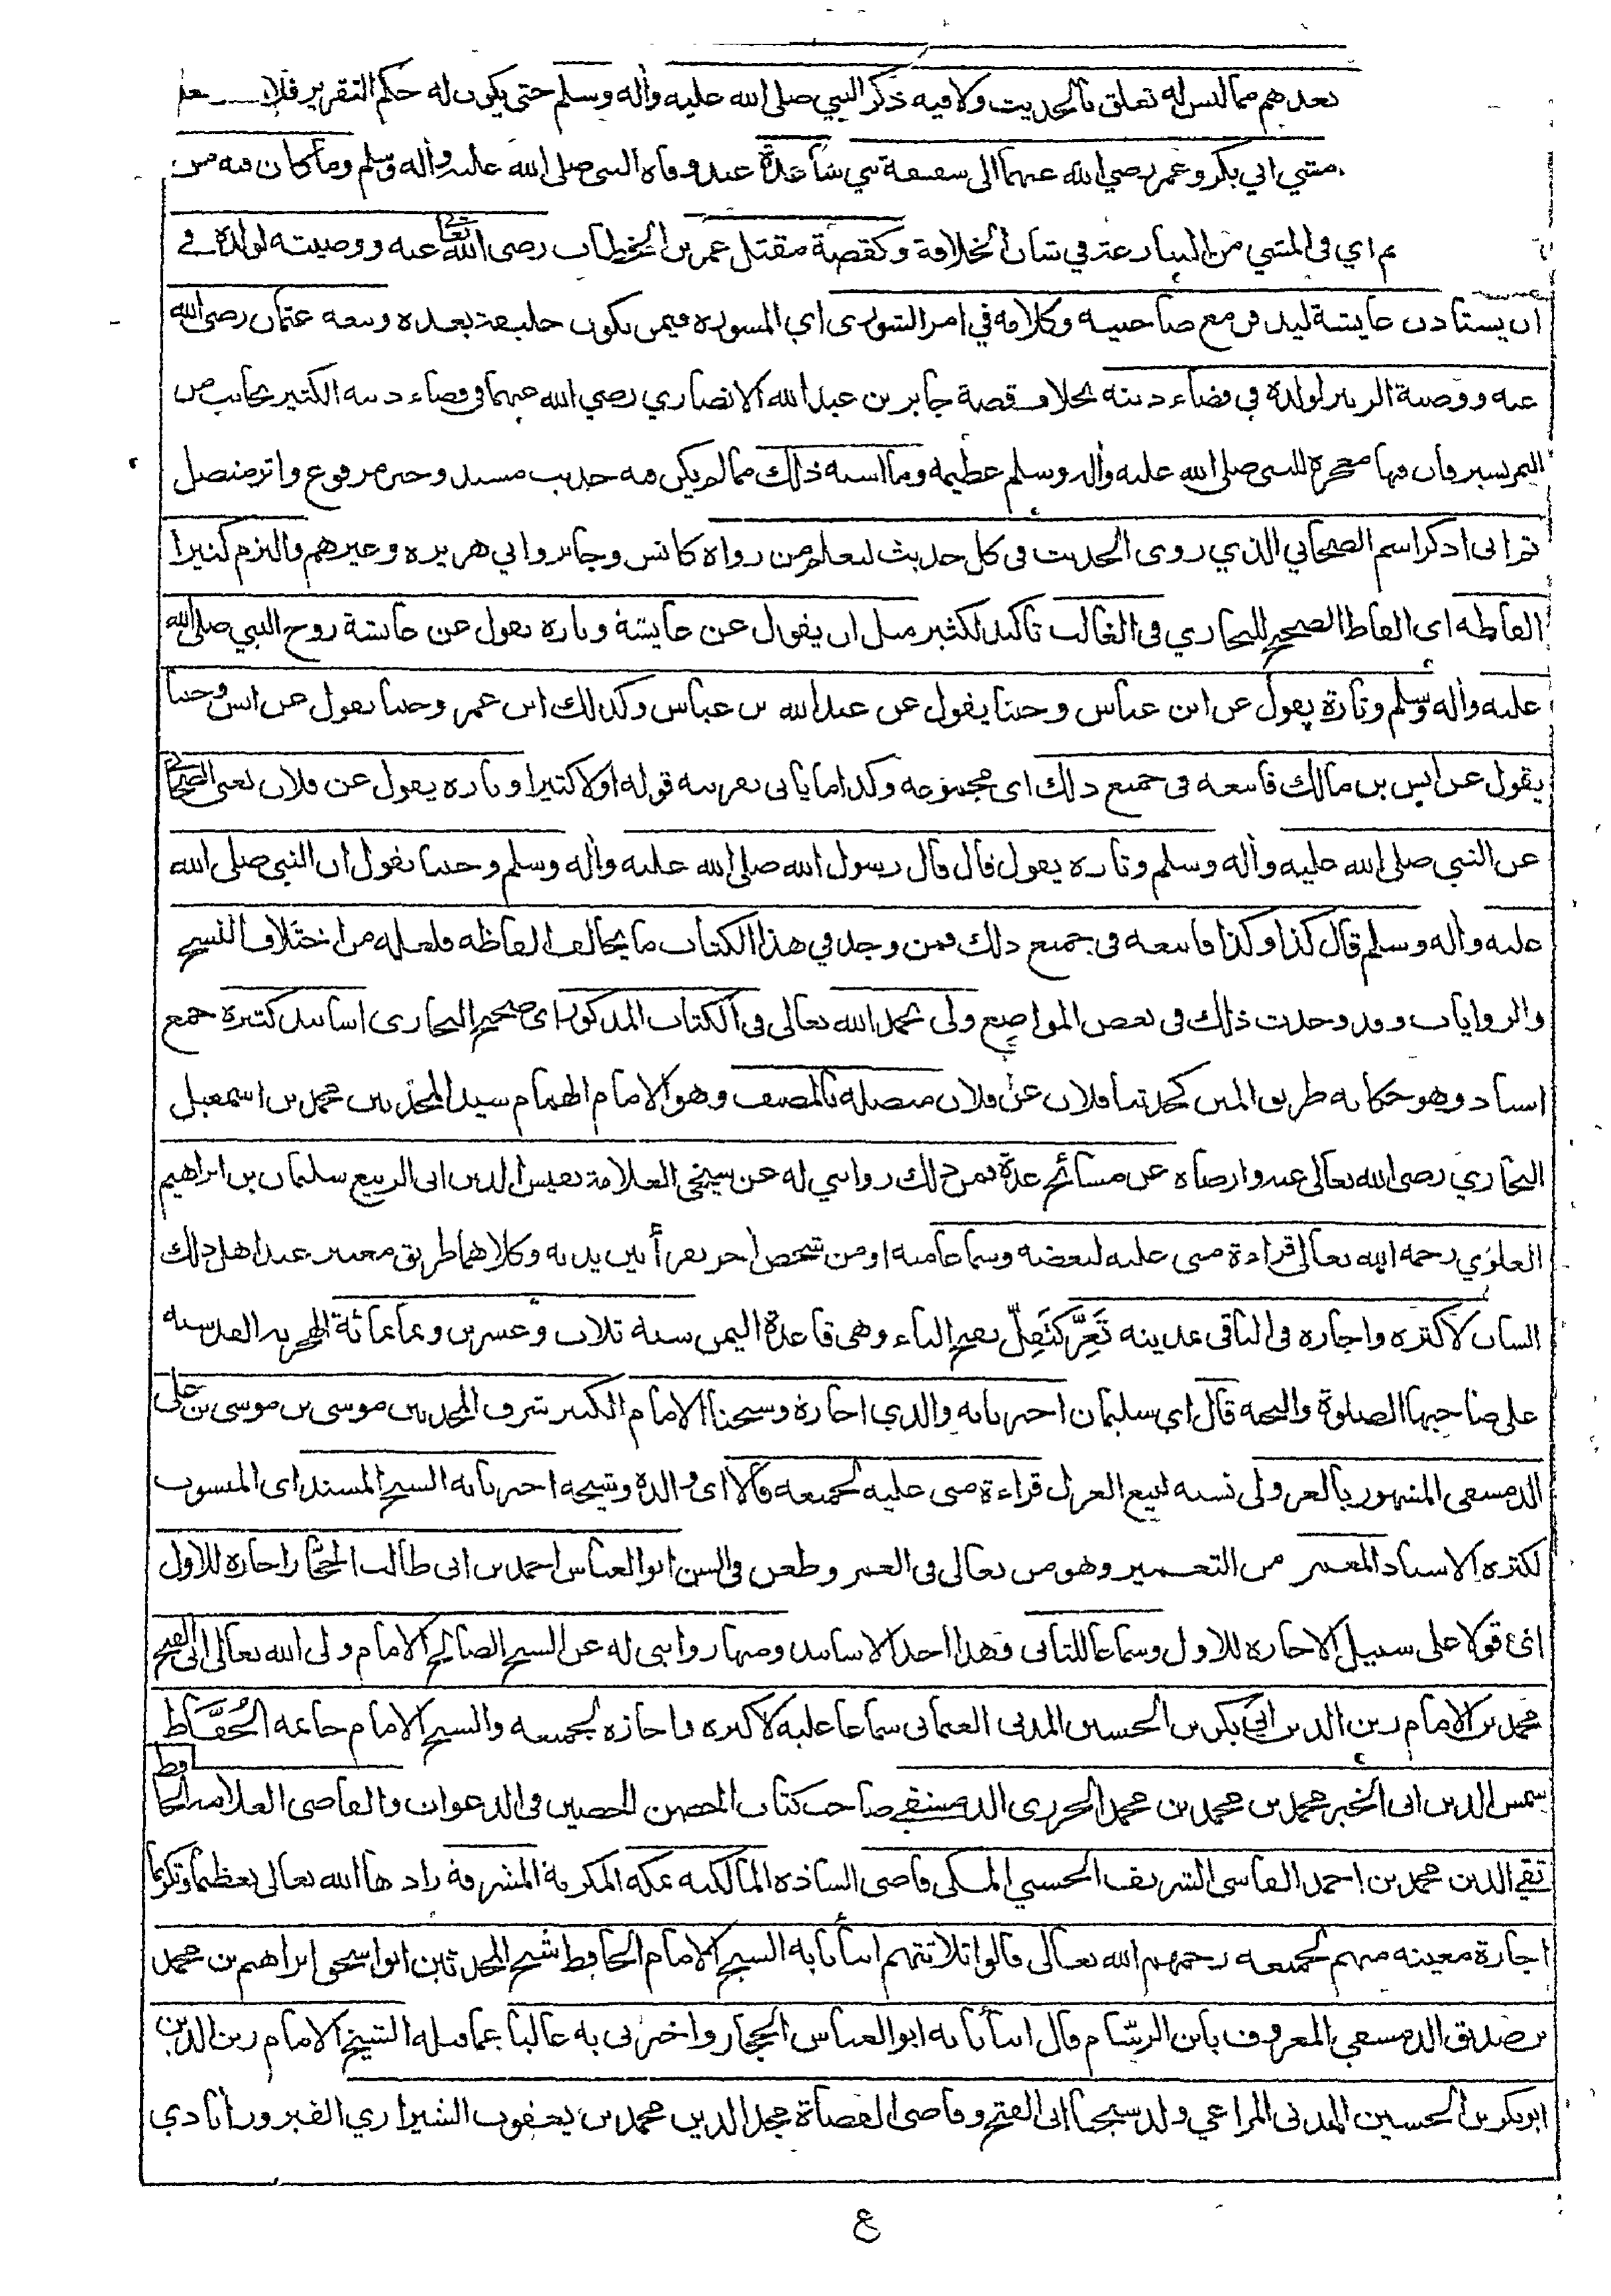 بعدهم مما ليس له تعلق بالحديث ولا فيه ذكر النبي صلى الله عليه وأله وسلم حتى يكون له حكم التقرير فلا
مشي ابي بكر وعمر رضي الله عنهما الى سقيفة بني ساعدة عند وفاة النبي صلى الله عليه وأله وسلم وما كان فيه من
م اي في المشي من المنازعة في شان الخلافة وكقصة مقتل عمر بن الخطاب رضى الله تعالى عنه ووصيته لولده في
ان يستاذن عايشة ليدفن مع صاحبيه وكلامه في امر الشورى اى المشورة فيمن يكون خليفة بعده وبيعة عثمان رضى الله
عنه ووصية الزبير لولده في قضاء دينه بخلاف قصة جابر بن عبد الله الانصاري رضي الله عنهما في قضاء دينه الكثير بجانب من
التمر يسير فان فيها معجزة للنبي صلى الله عليه وأله وسلم عظيمة وما اشبه ذلك مما لم يكن فيه حديث مسند وخبر مرفوع واثر متصل
ثم اني اذكر اسم الصحابي الذي روى الحديث في كل حديث ليعلم من رواه كانس وجابر وابي هريرة وغيرهم والتزم كثيرا
الفاظه اى الفاظ الصحيح للبخاري في الغالب تاكيد لكثير مثل ان يقول عن عايشة وتارة يقول عن عايشة زوج النبي صلى الله
عليه وأله وسلم وتارة يقول عن ابن عباس وحينا يقول عن عبد الله بن عباس وكذلك ابن عمر وحينا يقول عن انس وحينا
يقول عن انس بن مالك فاتبعه في جميع ذلك اى مجموعه وكذا ما ياتي بقرينة قوله اولا كثيرا وتارة يقول عن فلان يعني الصحابي
عن النبي صلى الله عليه وأله وسلم وتارة يقول قال قال رسول الله صلى الله عليه وأله وسلم وحينا يقول ان النبي صلى الله
عليه وأله وسلم قال كذا وكذا فاتبعه في جميع ذلك فمن وجد في هذا الكتاب ما يخالف الفاظه فلعله من اختلاف النسخ
والروايات وقد وجدت ذلك في بعض المواضع ولى بحمد الله تعالى في الكتاب المذكور اى صحيح البخارى اسانيد كثيرة جمع
اسناد وهو حكاية طريق المتن كحدثنا فلان عن فلان متصلة بالمصنف وهو الامام الهمام سيد المحدثين محمد بن اسمعيل
البخاري رضى الله تعالى عنه وارضاه عن مشائخ عدة فمن ذلك روايتي له عن شيخي العلامة نفيس الدين ابى الربيع سليمان بن ابراهيم
العلوي رحمه الله تعالى قراءة منى عليه لبعضه وسماعا منه او من شخص اخر يقرأ بين يديه وكلاهما طريق معتبر عند اهل ذلك
الشان لاكثره واجازة في الباقى بمدينة تَعِزَّ كتَقِلّ بفتح التاء وهى قاعدة اليمن سنة ثلاث وعشرين وثمانمائة الهجرية القدسية
على صاحبها الصلوة والتحية قال اى سليمان اخبرنا به والدي اجازة وشيخنا الامام الكبير شرف المحدثين موسى بن موسى بن على
الدمشقى المشهور بالغزولى نسبة لبيع الغزل قراءة منى عليه لجميعه قالا اى والده وشيخه اخبرنا به الشيخ المسند اى المنسوب
لكثرة الاسناد المعمر من التعمير وهو من تعالى في العمر وطعن في السن ابو العباس احمد بن ابى طالب الحجار اجازة للاول
اى قولا على سبيل الاجازة للاول وسماعا للثانى وهذا احد الاسانيد ومنها روايتى له عن الشيخ الصالح الامام ولى الله تعالى ابى الفتح
محمد بن الامام زين الدين ابى بكر بن الحسين المدنى العثمانى سماعا عليه لاكثره واجازة لجميعه والشيخ الامام خاتمة الحُفَّاظ
شمس الدين ابى الخير محمد بن محمد بن محمد الجزرى الدمشقي صاحب كتاب الحصن الحصين في الدعوات والقاضى العلامة الحافظ
تقي الدين محمد بن احمد الفاسى الشريف الحسني المكى قاضى السادة المالكية بمكة المكرمة المشرفة زادها الله تعالى تعظيما وتكريما
اجازة معينة منهم لجميعه رحمهم الله تعالى قالوا ثلاثتهم انبأنا به الشيخ الامام الحافظ شيخ المحدثين ابو اسحق ابراهيم بن محمد
بن صديق الدمشقي المعروف بابن الرسّام قال انبأنا به ابو العباس الحجار واخبرنى به عاليا عما قبله الشيخ الامام زين الدين
ابو بكر بن الحسين المدنى المراغي ولد شيخنا ابى الفتح وقاضى القضاة مجد الدين محمد بن يعقوب الشيرازي الفيروزآبادي
ع